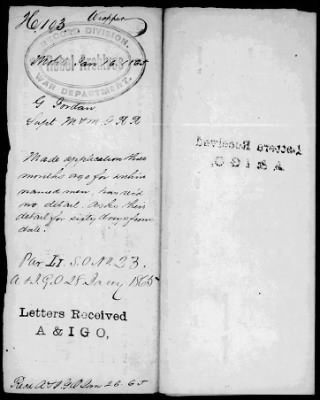 H. 103 Wrapper
RECORD DIVISION.
Rebel Archives
WAR DEPARTMENT.
Mobile Jan 1865
G Jordan
Supt M & M. G R R
Made application three
months ago for within
named men, has rec'd
no detail. asks their
detail for sixty days from
date.
Par II. S.O No 23.
A & I.G.O 28 Jany 1865
Letters Received
A & I G O,
Recd A & I GO Jan 26 65
Letters Received
A & I G O,